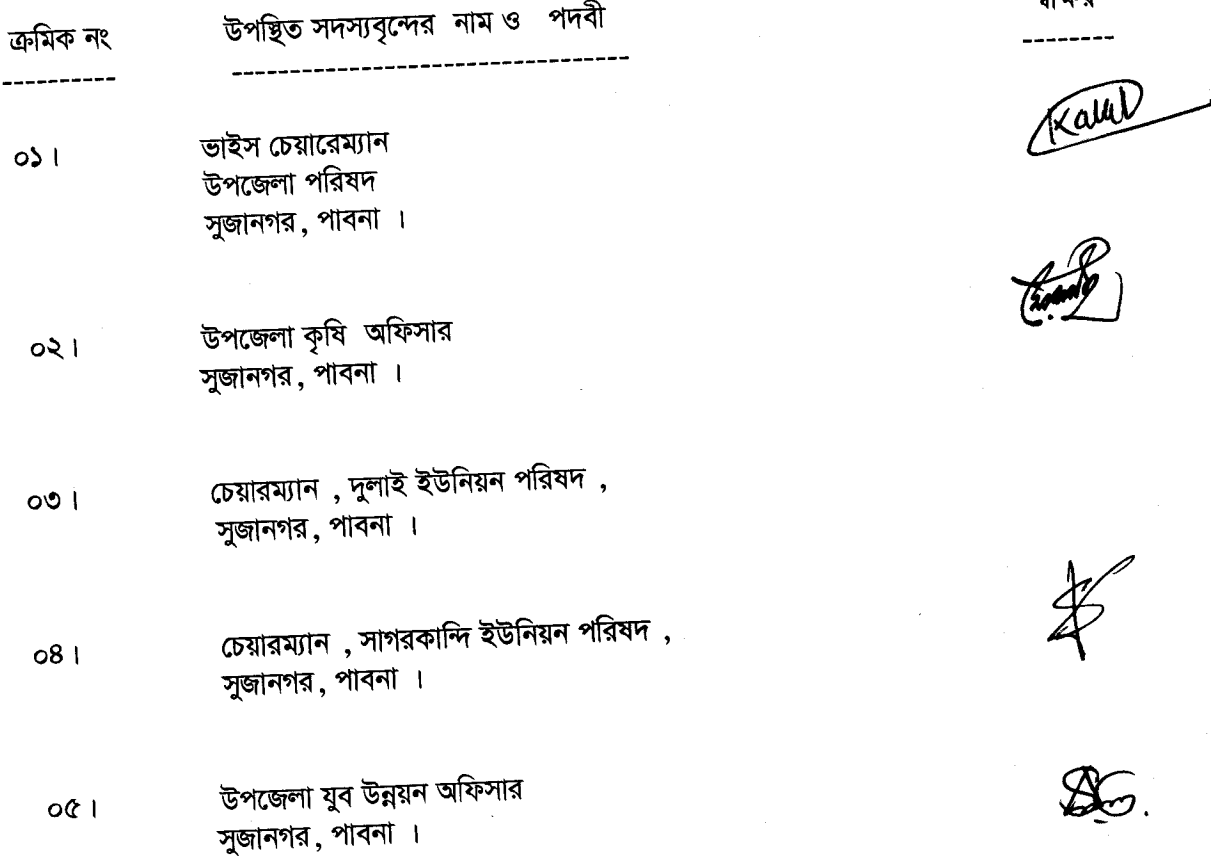 ক্রমিক নং উপস্থিত সদস্যবৃন্দের নাম ও পদবী
---------- ---------------------------------- --------
০১। ভাইস চেয়ারেম্যান
উপজেলা পরিষদ
সুজানগর, পাবনা ।
০২। উপজেলা কৃষি অফিসার
সুজানগর, পাবনা ।
০৩। চেয়ারম্যান , দুলাই ইউনিয়ন পরিষদ ,
সুজানগর, পাবনা ।
০৪। চেয়ারম্যান , সাগরকান্দি ইউনিয়ন পরিষদ ,
সুজানগর, পাবনা ।
০৫। উপজেলা যুব উন্নয়ন অফিসার
সুজানগর, পাবনা ।